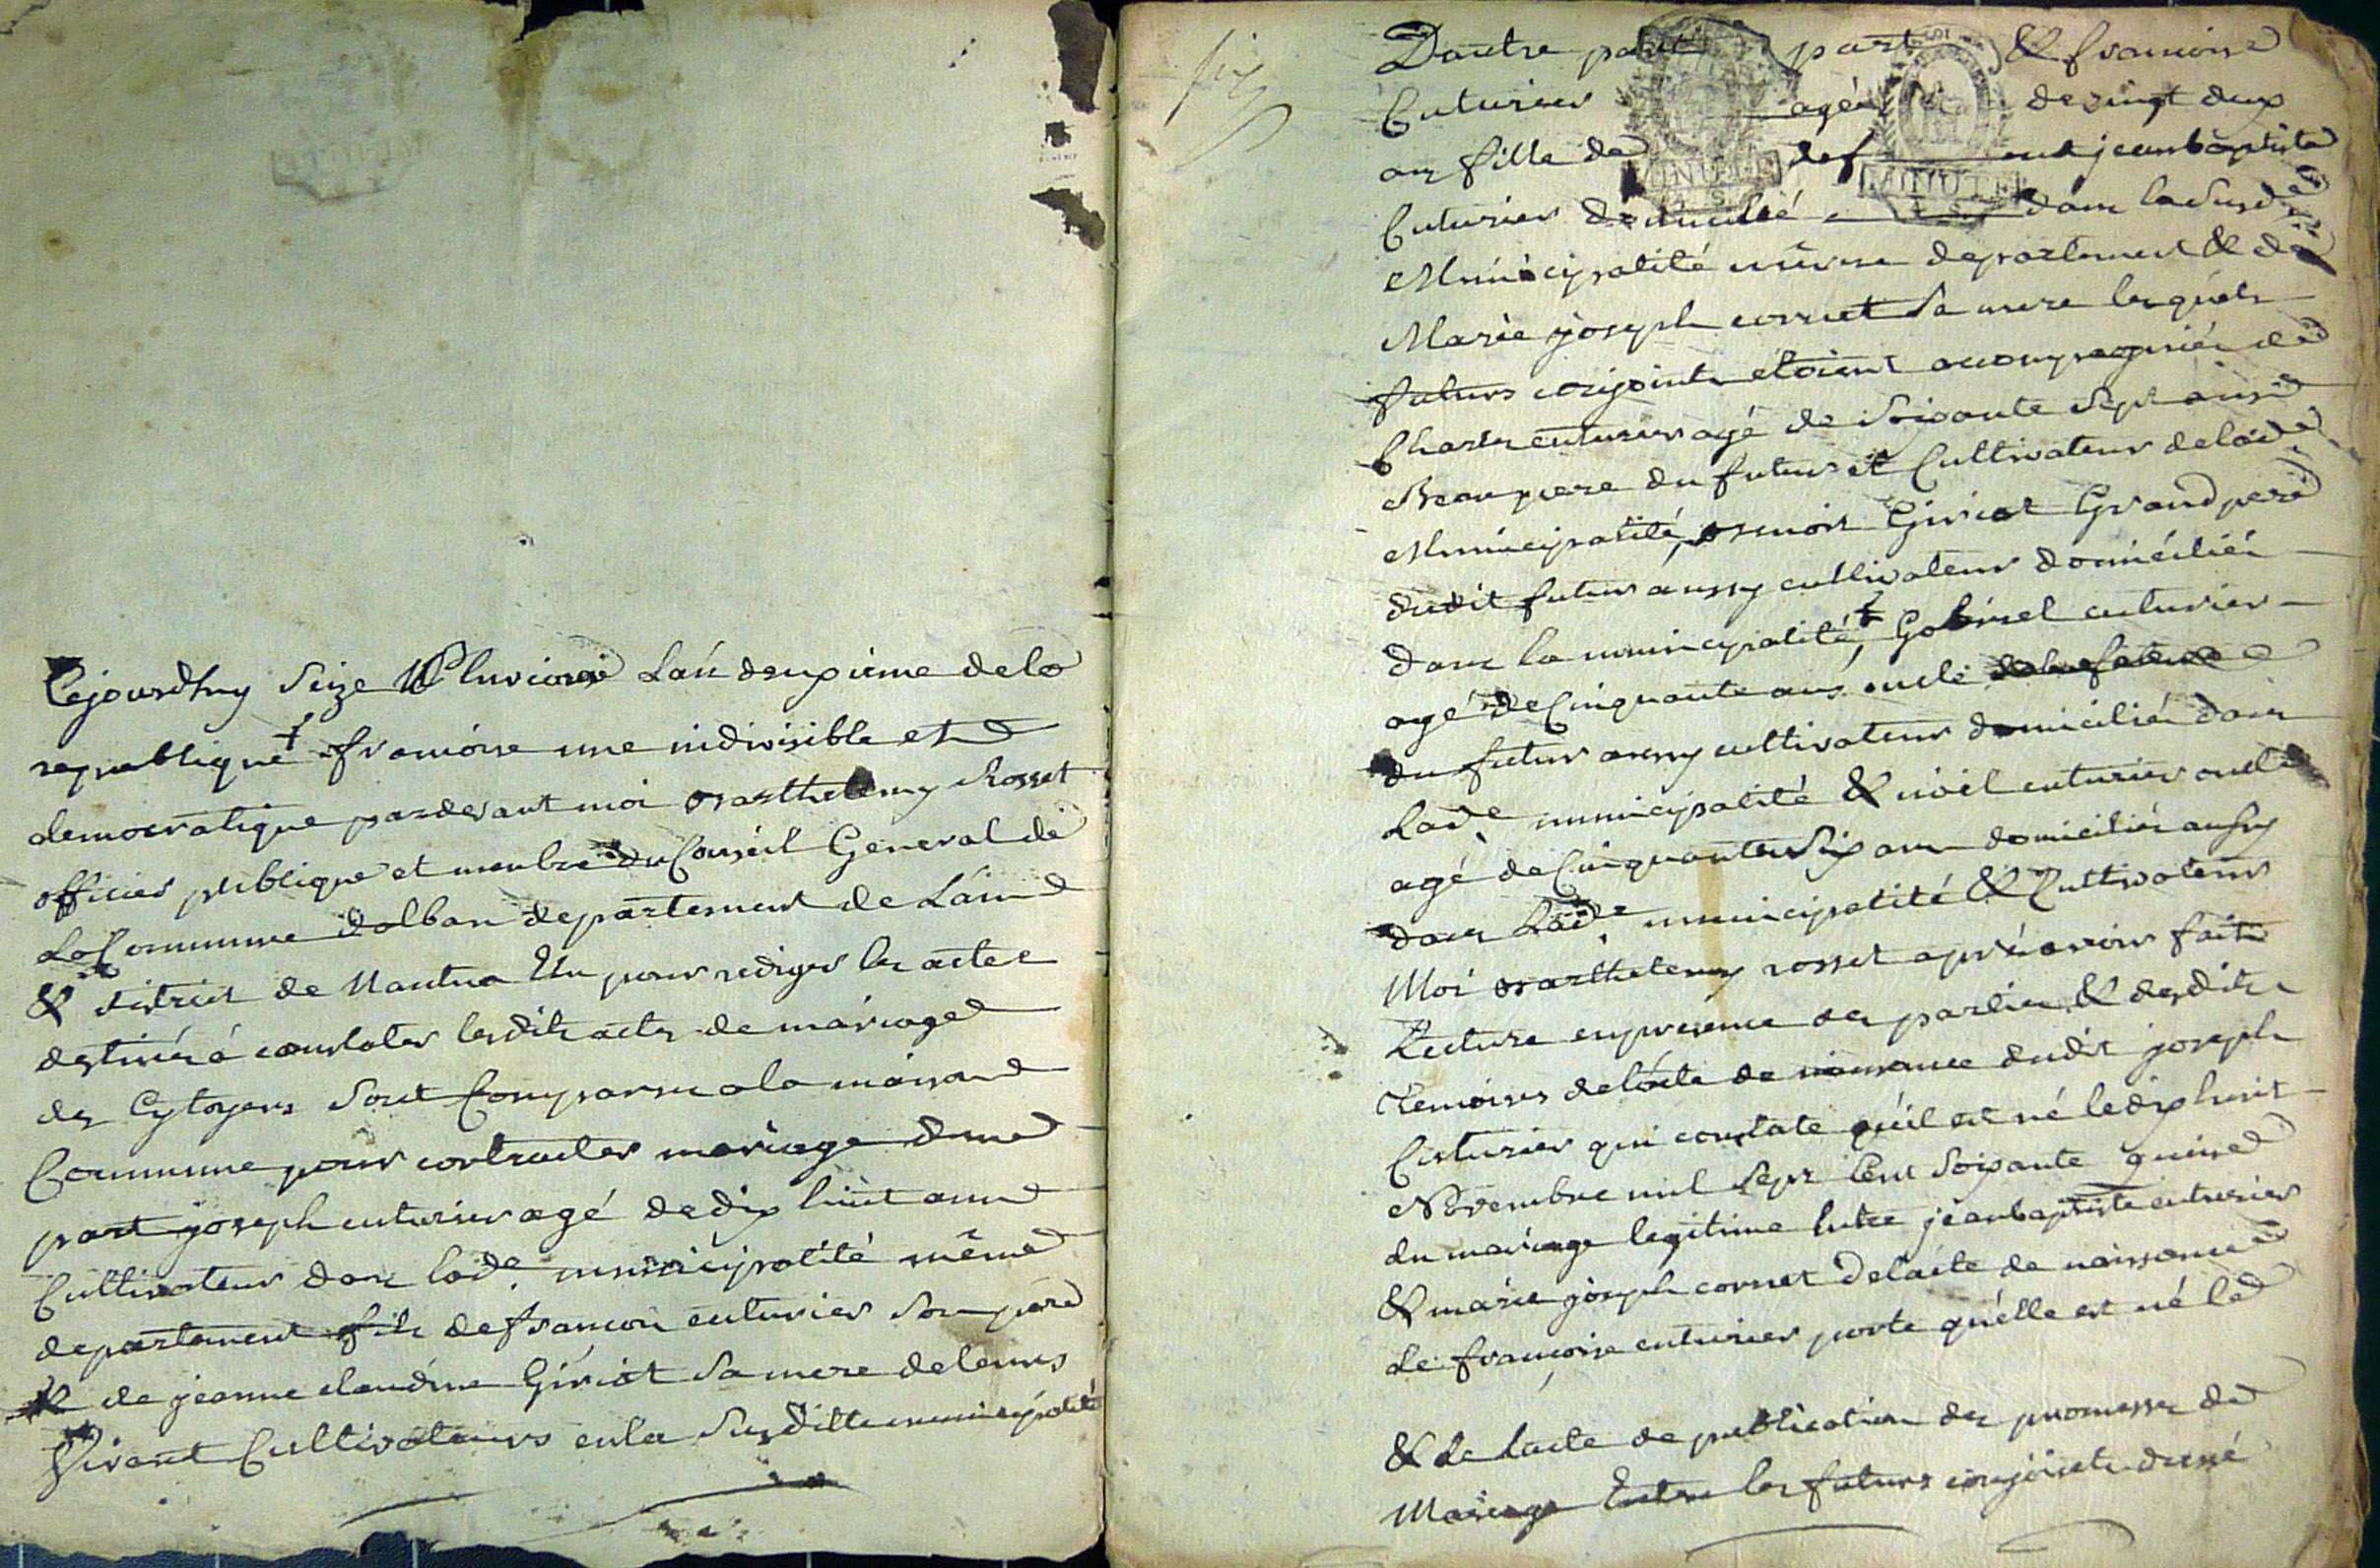 Cejourdhuy Seize Pluviose Lan deuxieme dela
republique francoise une indivisible et
democratique pardevant moi Barthelemy Rosset
officier publique et membre du Conseil General de
La Commune dalban departement de Lain
& district de Nantua Elu pour rediger les actes
destinés a constater lesdits actes de mariage
des Cytoyens sont Comparus a la maison
Commune pour contracter mariage dune
part joseph cuturier agé de dix huit ans
Cultivateur dans lade municipalité même
departement fils de francois cuturier Son pere
& de jeanne claudine Giriat Sa mere de leurs
Vivant Cultivateurs en la Susditte municipalité
Dautre part part & francoise
Cuturier agée de vingt deux
ans fille de def jeanbaptiste
Cuturier domicilié dans la Susde
Municipalité même departement & de
Marie joseph cornet Sa mere lesquels
futurs conjoints étoient accompagniés de
Charles cuturier agé de Soixante Sept ans
Beaupere du futur et Cultivateur de lade
Municipalité, Benoit Giriat Grand pere
dudit futur aussy cultivateur domiciliés
dans la municipalité, Gabriel cuturier
agé de Cinquante ans oncle
du futur aussy cultivateur domiciliés dans
Lade municipalité & noël cuturier oncle
agé de Cinquante Six ans domiciliés aussy
dans Lade municipalité & Cultivateurs
Moi Barthelemy rosset après avoir fait
Lecture en presence des parties & desdits
Temoins de lacte de naissance dudit joseph
Cuturier qui constate quil est né le dix huit
Novembre mil Sept Cent Soixante quinze
du mariage legitime Entre jeanbaptiste cuturier
& marie joseph cornet De lacte de naissance
de françoise cuturier porte quelle est né le
& de Lacte de publication des promesses de
Mariage Entre les futurs conjoints dressé
MINUTE
MINUTE